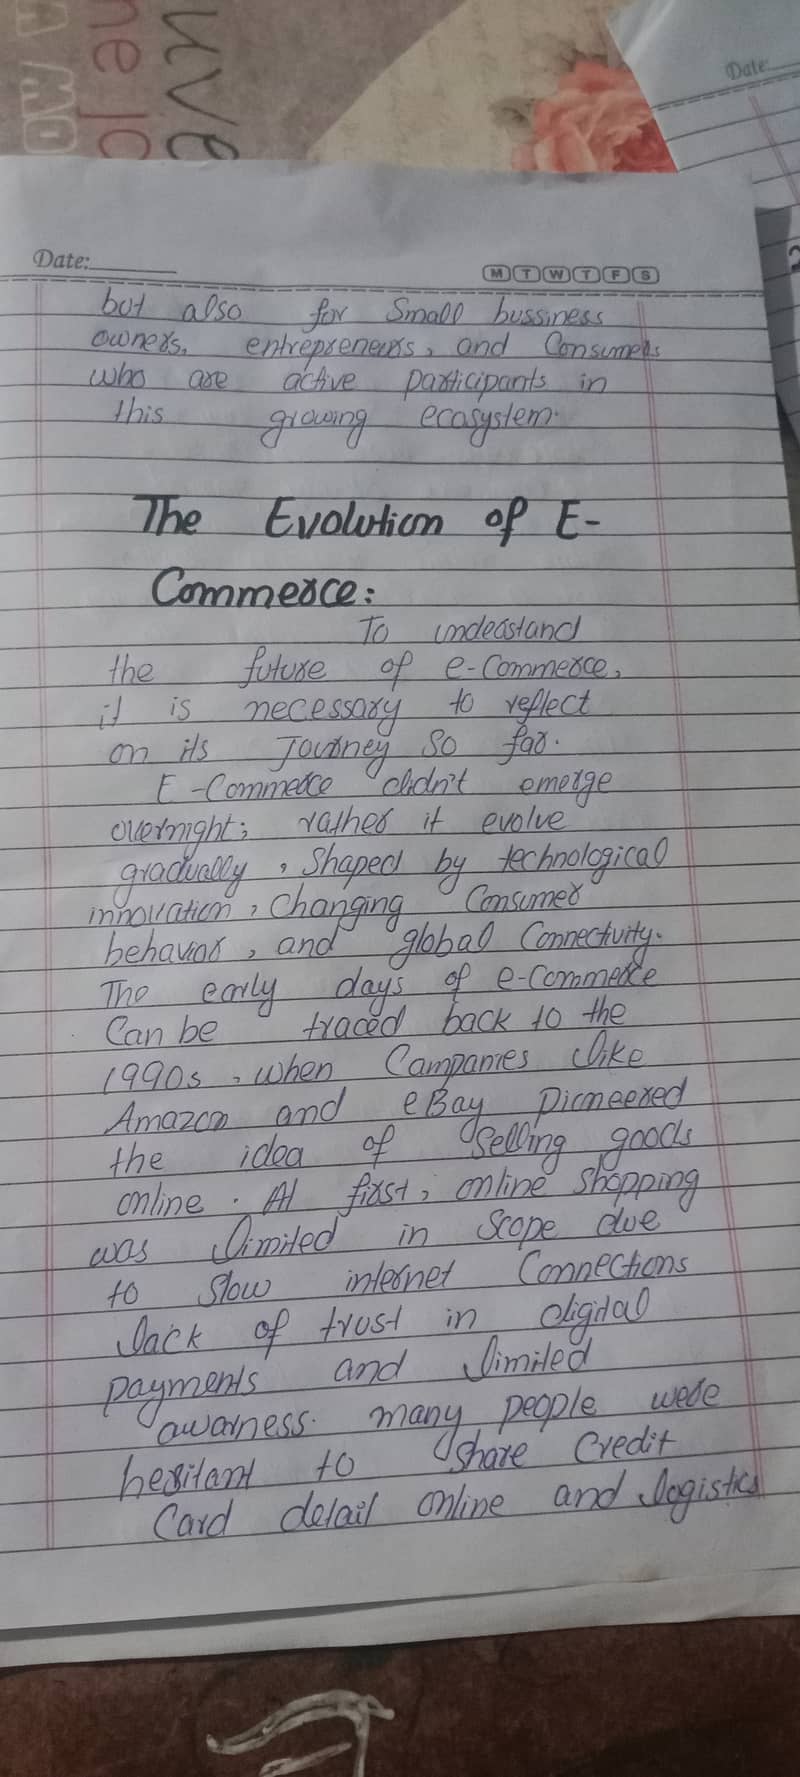 UVE
ne jo
A MO
Date:
Date:
M T W T F S
but also for Small bussiness
owners, entrepreneurs, and Consumers
who are active participants in
this growing ecosystem.
The Evolution of E-
Commerce:
To understand
the future of e-Commerce,
it is necessary to reflect
on its Journey So far.
E-Commerce didn't emerge
overnight; rather it evolve
gradually, Shaped by technological
innovation, Changing Consumer
behavior, and global Connectivity.
The early days of e-Commerce
Can be traced back to the
1990s, when Companies like
Amazon and eBay pioneered
the idea of Selling goods
online. At first, online shopping
was limited in Scope due
to Slow internet Connections
lack of trust in digital
payments and limited
awarness. many people were
hesitant to Share Credit
Card detail online and logistics